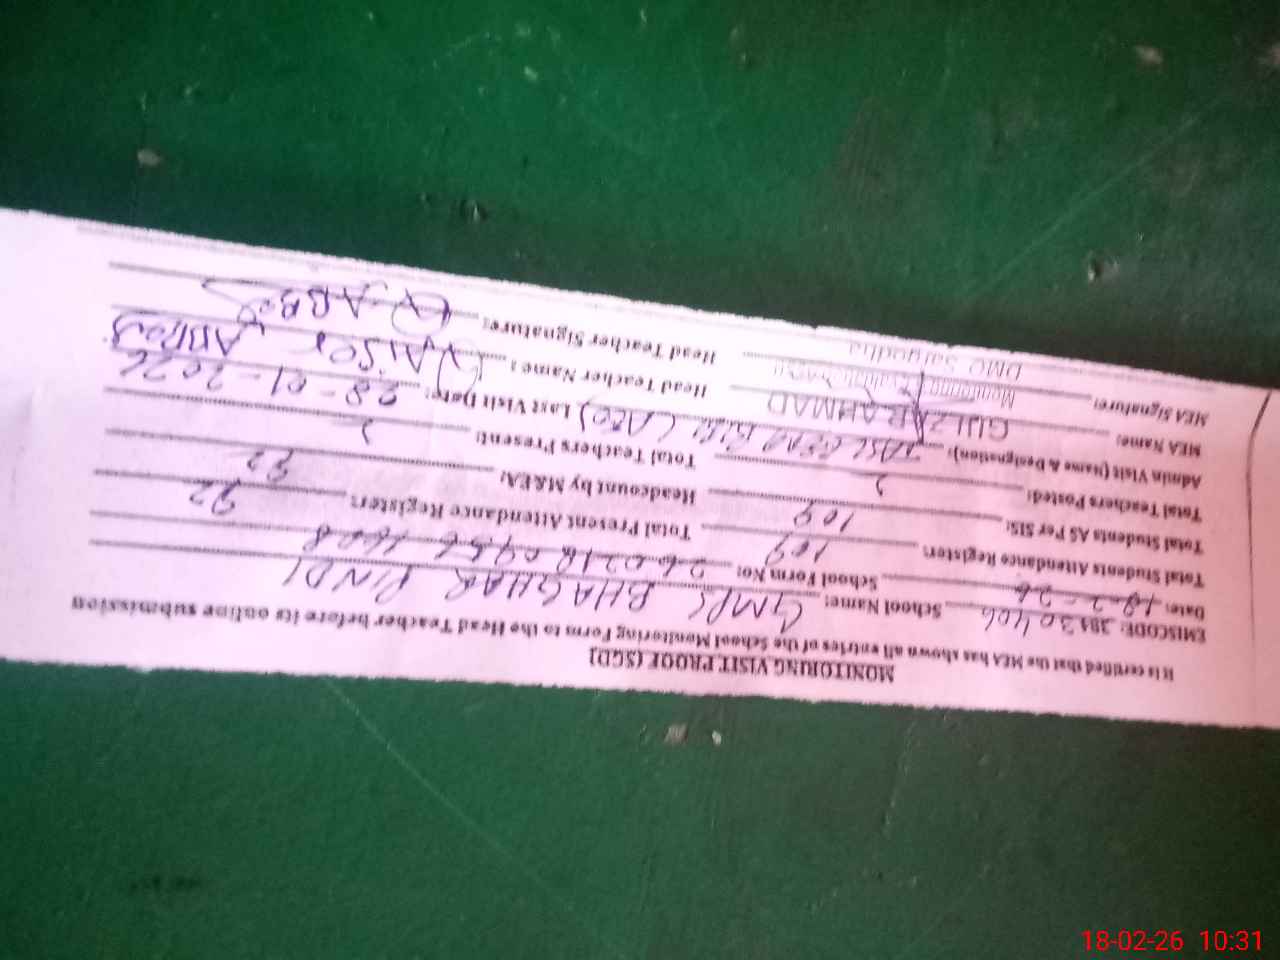 MONITORING VISIT PROOF (SGD)
It is certified that the MEA has shown all entries of the School Monitoring Form to the Head Teacher before its online submission
EMISCODE: 38130406 School Name: GMPS BHAGHAR PINDI
Date: 18-2-26 School Form No:
Total Students Attendance Register: 109 Total Present Attendance Register: 92
Total Students AS Per SIS: 109 Headcount by M&EA: 92
Total Teachers Posted: 2 Total Teachers Present: 2
Admin Visit (Name & Designation): (AEO) Last Visit Date: 28-01-2026
MEA Name: GULZAR AHMAD Head Teacher Name: QAISOR ABBAS
MEA Signature: Monitoring Head Teacher Signature: Q.ABBAS
DMO Sargodha
18-02-26 10:31